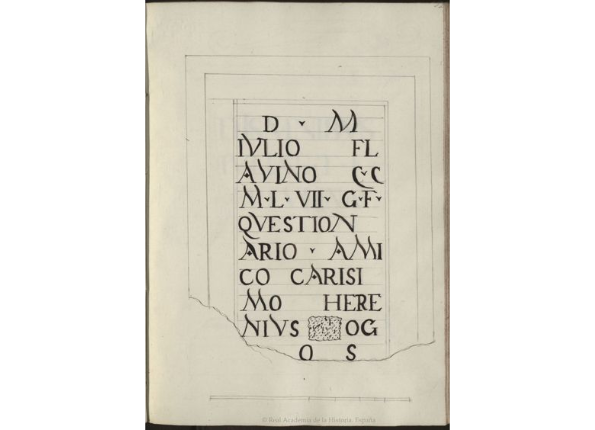 D · M
IVLIO FL
AVINO C·C
M·L·VII·G·F·
QVESTION
ARIO · AMI
CO CARISI
MO HERE
NIVS OG
O S
© Real Academia de la Historia. España